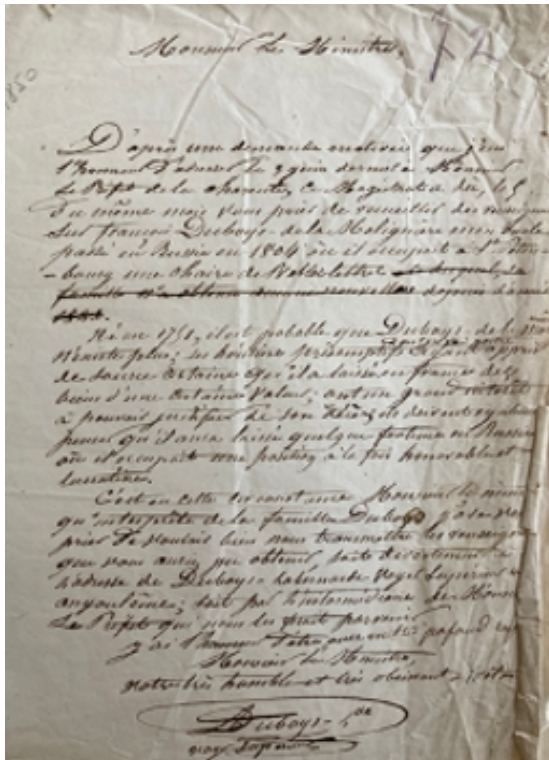 Monsieur Le Ministre,
72
1850
D'après une demande motivée que j'eus
l'honneur d'adresser le 9 juin dernier à Monsieur
Le Préfet de la Charente, ce Magistrat a dû, le
du même mois vous prier de recueillir des
sur françois Duboys de la
passé en Russie en 1804 où il occupait à St Peters
-bourg une chaire de Belles lettres
famille n'a obtenu aucune nouvelle depuis
Né en 1751, il est probable que Duboys de la
n'existe plus; ses héritiers présomptifs ayant appris
de source certaine qu'il a laissé en france des
biens d'une certaine valeur, ont un grand intérêt
à pouvoir justifier de son décès, ils doivent
penser qu'il aura laissé quelque fortune en Russie
où il occupait une position à la fois honorable et
lucrative.
C'est en cette circonstance Monsieur le
qu'interprète de la famille Duboys j'ose vous
prier de vouloir bien nous transmettre les
que vous aurez pu obtenir, soit directement à
l'adresse de Duboys
angoulême; soit par l'intermédiaire de Monsieur
Le Préfet qui nous les ferait parvenir
j'ai l'honneur d'être avec un très profond
Monsieur Le Ministre,
votre très humble et très obéissant
Duboys